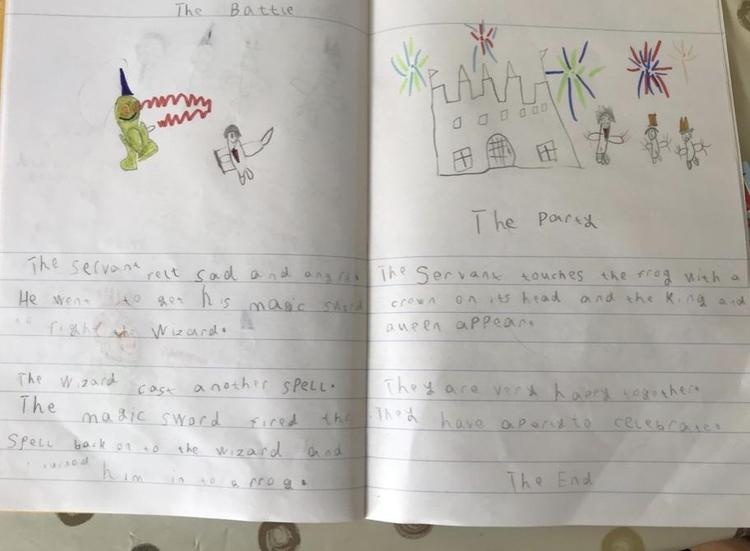 The Battle
The servant felt sad and angry.
He went to get his magic sword
to fight the wizard.
The wizard cast another spell.
The magic sword fired the
spell back on to the wizard and
turned him in to a frog.
The Party
The Servant touches the frog with a
crown on its head and the King and
queen appear.
They are very happy together.
They have a party to celebrate.
The End